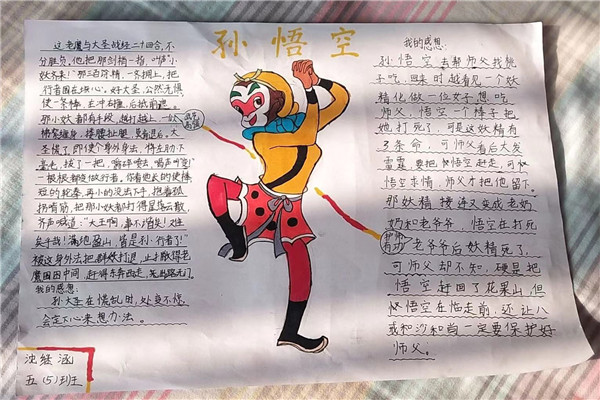 孙悟空
这老魔与大圣战经二十回合,不
分胜负。他把那剑梢一指,叫声"小
妖齐来!"那三百余精,一齐拥上,把
行者围在垓心。好大圣,公然无惧,
使一条棒,左冲右撞,后抵前遮。
那小妖都有手段,越打越上,一似
绵絮缠身,搂腰扯腿,莫肯退后。大
圣慌了,即使个身外身法,将左胁下
毫毛,拔了一把,嚼碎喷去,喝声叫"变!"
一根根都变做行者。你看他长的使棒,
短的轮拳,再小的没去下手,抱着孤
拐啃筋,把那小妖都打得星落云散,
齐声喊道:"大王啊,事不谐矣!难
矣乎哉!满地盈山,皆是孙行者了!"
被这身外法把群妖打退,止撇得老
魔围困中间,赶得东奔西走,无出路无门。
我的感想:
孙大圣在慌乱时,处变不惊,
会定下心来想办法。
沈经涵
五(5)班
我的感想:
孙悟空去帮师父找桃
子吃,回来时越看见一个妖
精化做一位女子想吃
师父,悟空一个棒子把
她打死了,可是这妖精有
3条命,可师父看后大发
雷霆,要把悟空赶走,可
悟空求情,师父才把他留下。
那妖精接连又变成老奶
奶和老爷爷,悟空在打死
老爷爷后妖精死了,
可师父却不知,硬是把
悟空赶回了花果山,但
悟空在临走前,还让八
戒和沙和尚一定要保护好
师父。